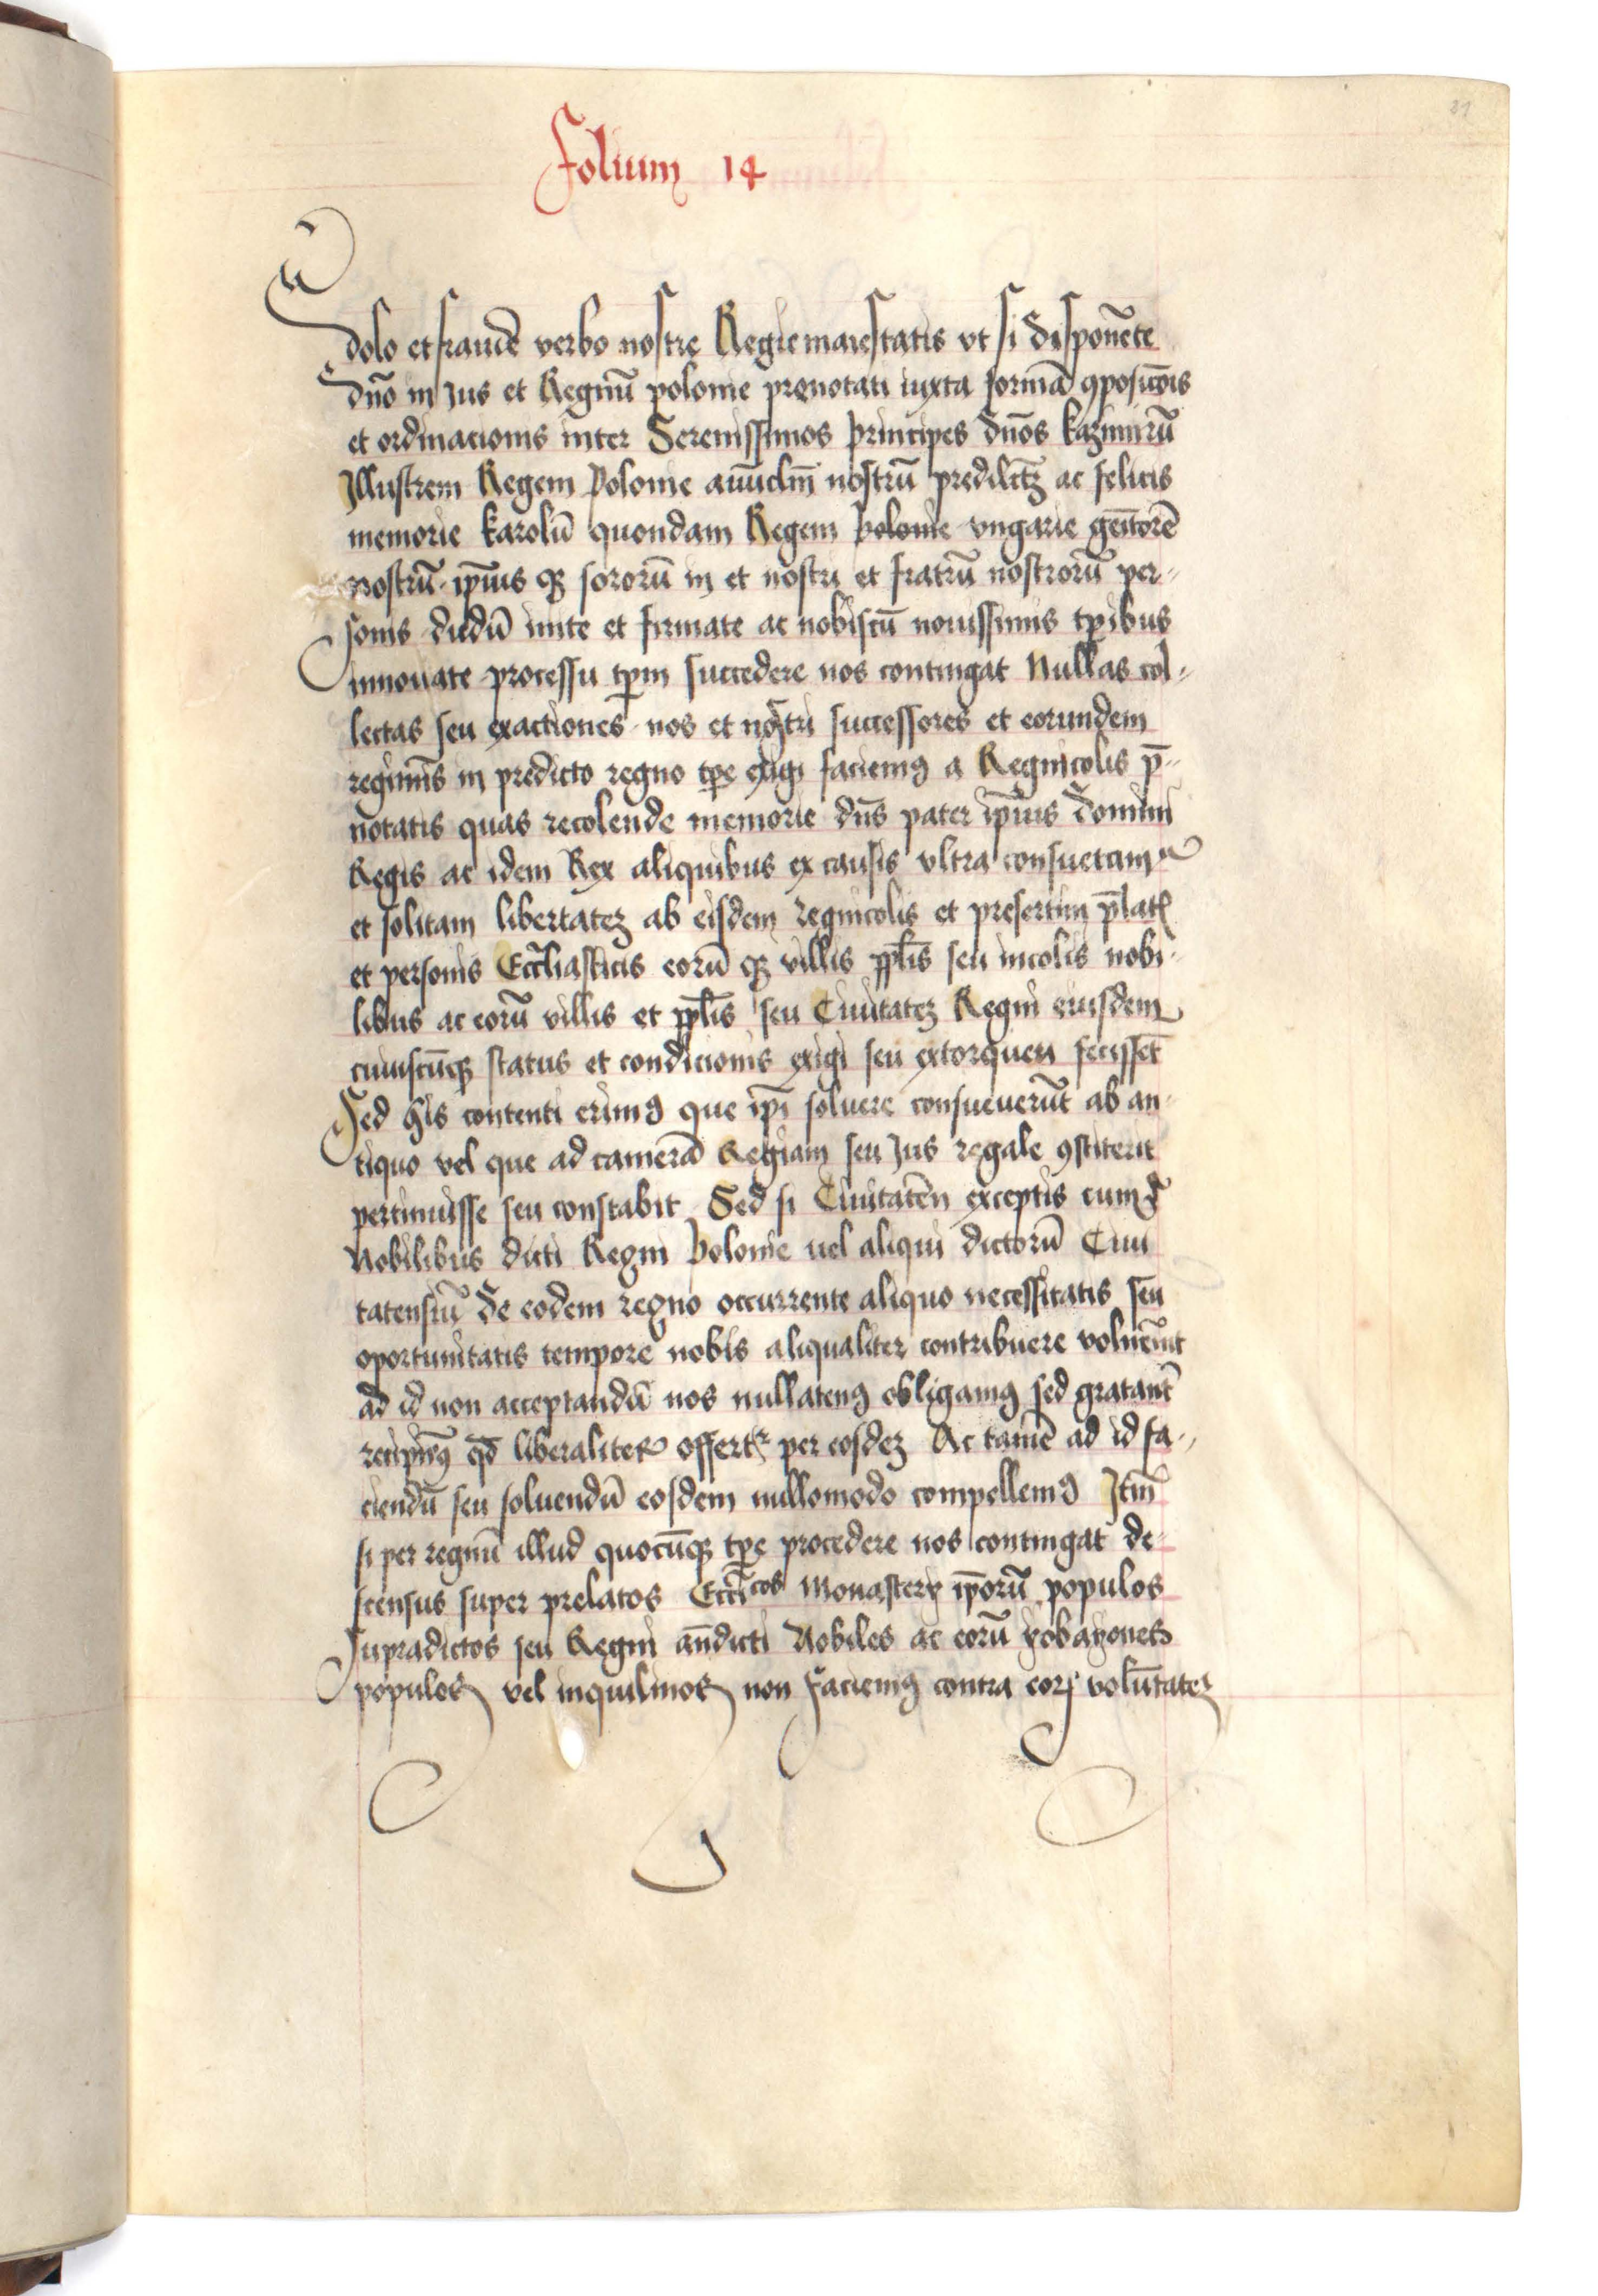 21
Folium 14
dolo et fraude verbo nostre Regie maiestatis vt si disponēte
dn̄o in Jus et Regnū polonie prenotati iuxta formā ꝯposicōis
et ordinacionis inter Serenissimos principes dn̄os kazimirū
Jllustrem Regem Polonie auūclm̄ nostrū predilctꝫ ac felicis
memorie karolū quondam Regem Polonie vngarie gēitorē
nostrū ip̄ius qꝫ sororū in et nostri et fratrū nostrorū per
sonis dudū inite et firmate ac nobiscū nouissimis tp̄ibus
innouate processu tp̄m succedere nos contingat Nullas col
lectas seu exactiones nos et nostri successores et eorundem
regimīs in predicto regno tp̄e exigi faciemꝰ a Regnicolis p̄
notatis quas recolende memorie dn̄s pater ip̄ius domini
Regis ac idem Rex aliquibus ex causis vltra consuetam
et solitam libertateꝫ ab eisdem regnicolis et presertim p̄latꝭ
et personis Eccl̄iasticis eorū qꝫ villis pp̄lis seu incolis nobi
libus ac eorū villis et pp̄lis seu Ciuitateꝫ Regni eiusdem
cuiuscūqꝫ status et condicionis exigi seu extorqueri fecisset
Sed hīs contenti erimꝰ que ip̄i soluere consueuerūt ab an
tiquo vel que ad camerā Regiam seu Jus regale ꝯstiterit
pertinuisse seu constabit Sed si Ciuitatēn exceptis cum
Nobilibus dicti Regni Polonie uel aliqui dictorū Ciui
tatensiū de eodem regno occurrente aliquo necessitatis seu
oportunitatis tempore nobis aliqualiter contribuere voluēint
ad id non acceptandū nos nullatenꝰ obligamꝰ sed gratant̄
recipimꝰ qd̄ liberaliter offertr per eosdeꝫ Ac tamē ad id fa
ciendū seu soluendū eosdem nullomodo compellemꝰ Jtm̄
si per regnū illud quocūqꝫ tp̄e procedere nos contingat de
scensus super prelatos Eccīcos Monasterꝝ ip̄orū populos
supradictos seu Regni an̄dicti Nobiles ac eorū yobagones
populos vel inquilinos non faciemꝰ contra eorꝭ volūtateꝫ